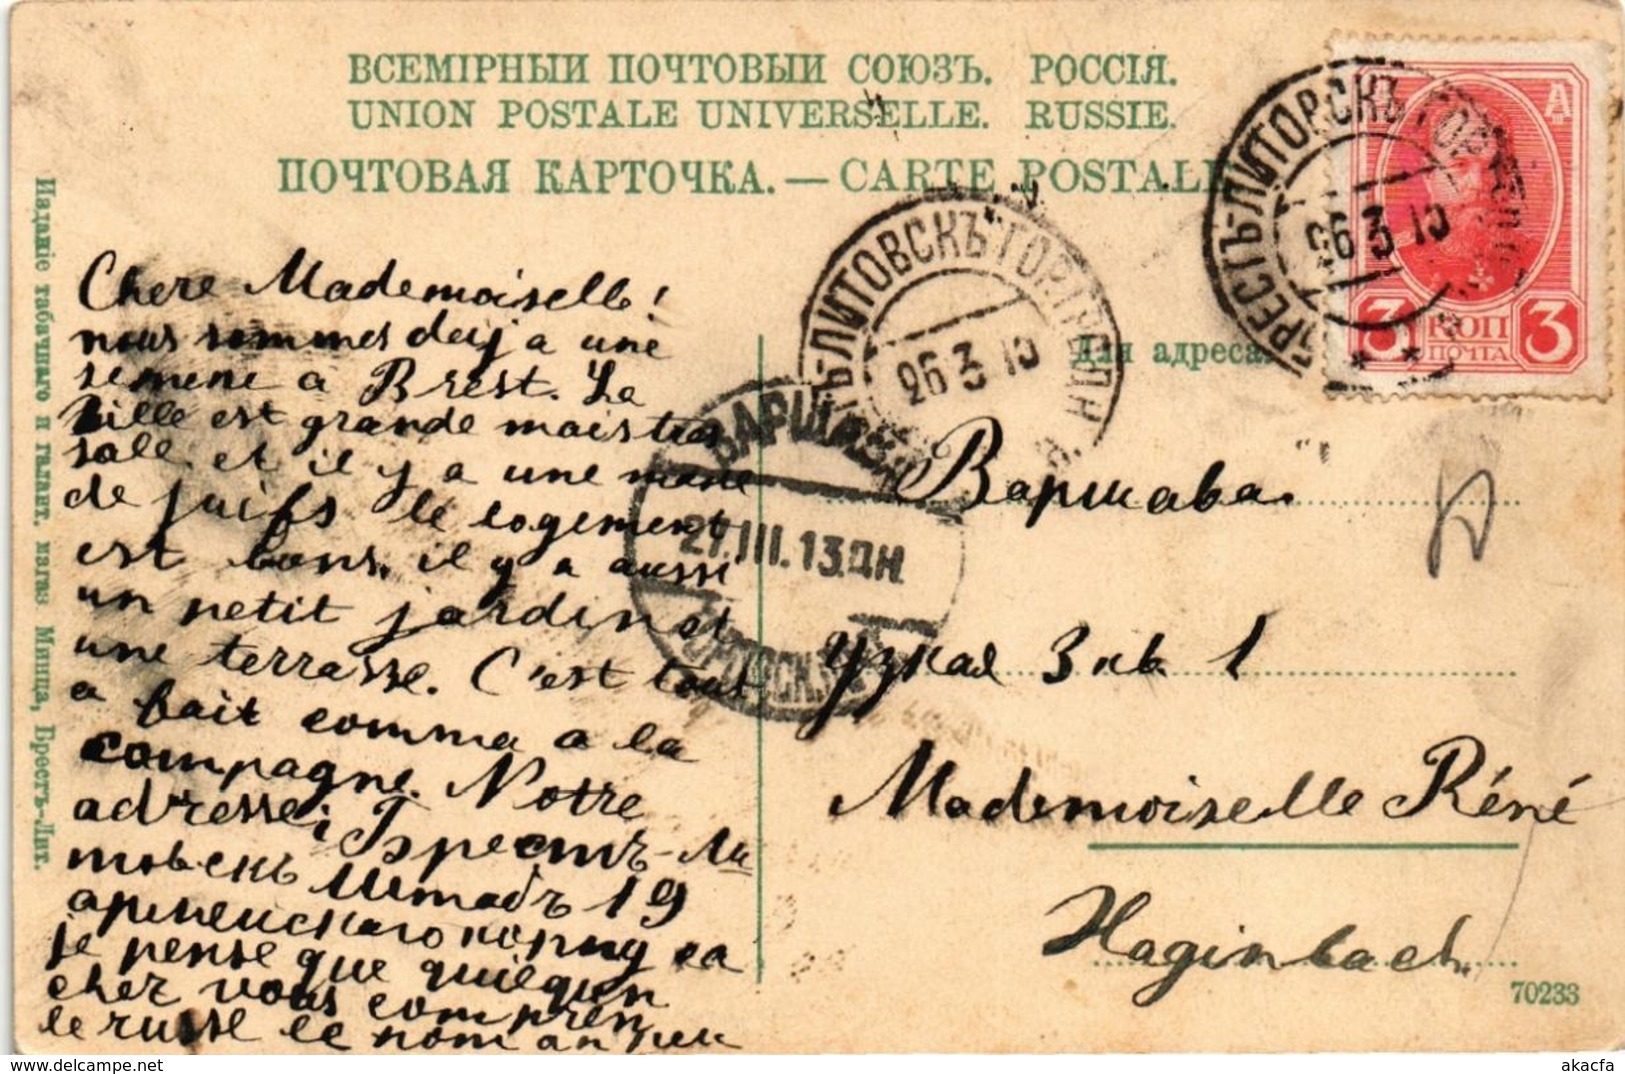 ВСЕМІРНЫИ ПОЧТОВЫИ СОЮЗЪ. РОССІЯ.
UNION POSTALE UNIVERSELLE. RUSSIE.
ПОЧТОВАЯ КАРТОЧКА.—CARTE POSTALE
3 КОП 3
ПОЧТА
БРЕСТЪ-ЛИТОВСКЪ ГОР
26 3 13
Ъ-ЛИТОВСКЪ ГОР
26 3 13
ВАРШАВА
27.III.13.ДН
Для адреса.
Chere Mademoiselle!
nous sommes deja a une
semene a Brest. La
ville est grande mais tres
sale et il y a une mase
de juifs le logement
est bons. il y a aussi
un petit jardin et
une terrasse. C'est tout
a fait comme a la
compagne. Notre
adresse: Брестъ-Ли
товскъ Штабъ 19
Армейскаго корпуса
je pense que quelqun
chez vous compren
le russe le nom
Варшава.
Узкая 3 кв 1
Mademoiselle Réné
Haginbach.
Изданіе табачнаго и галант. магаз Минца, Брестъ-Лит.
70233
akacfa